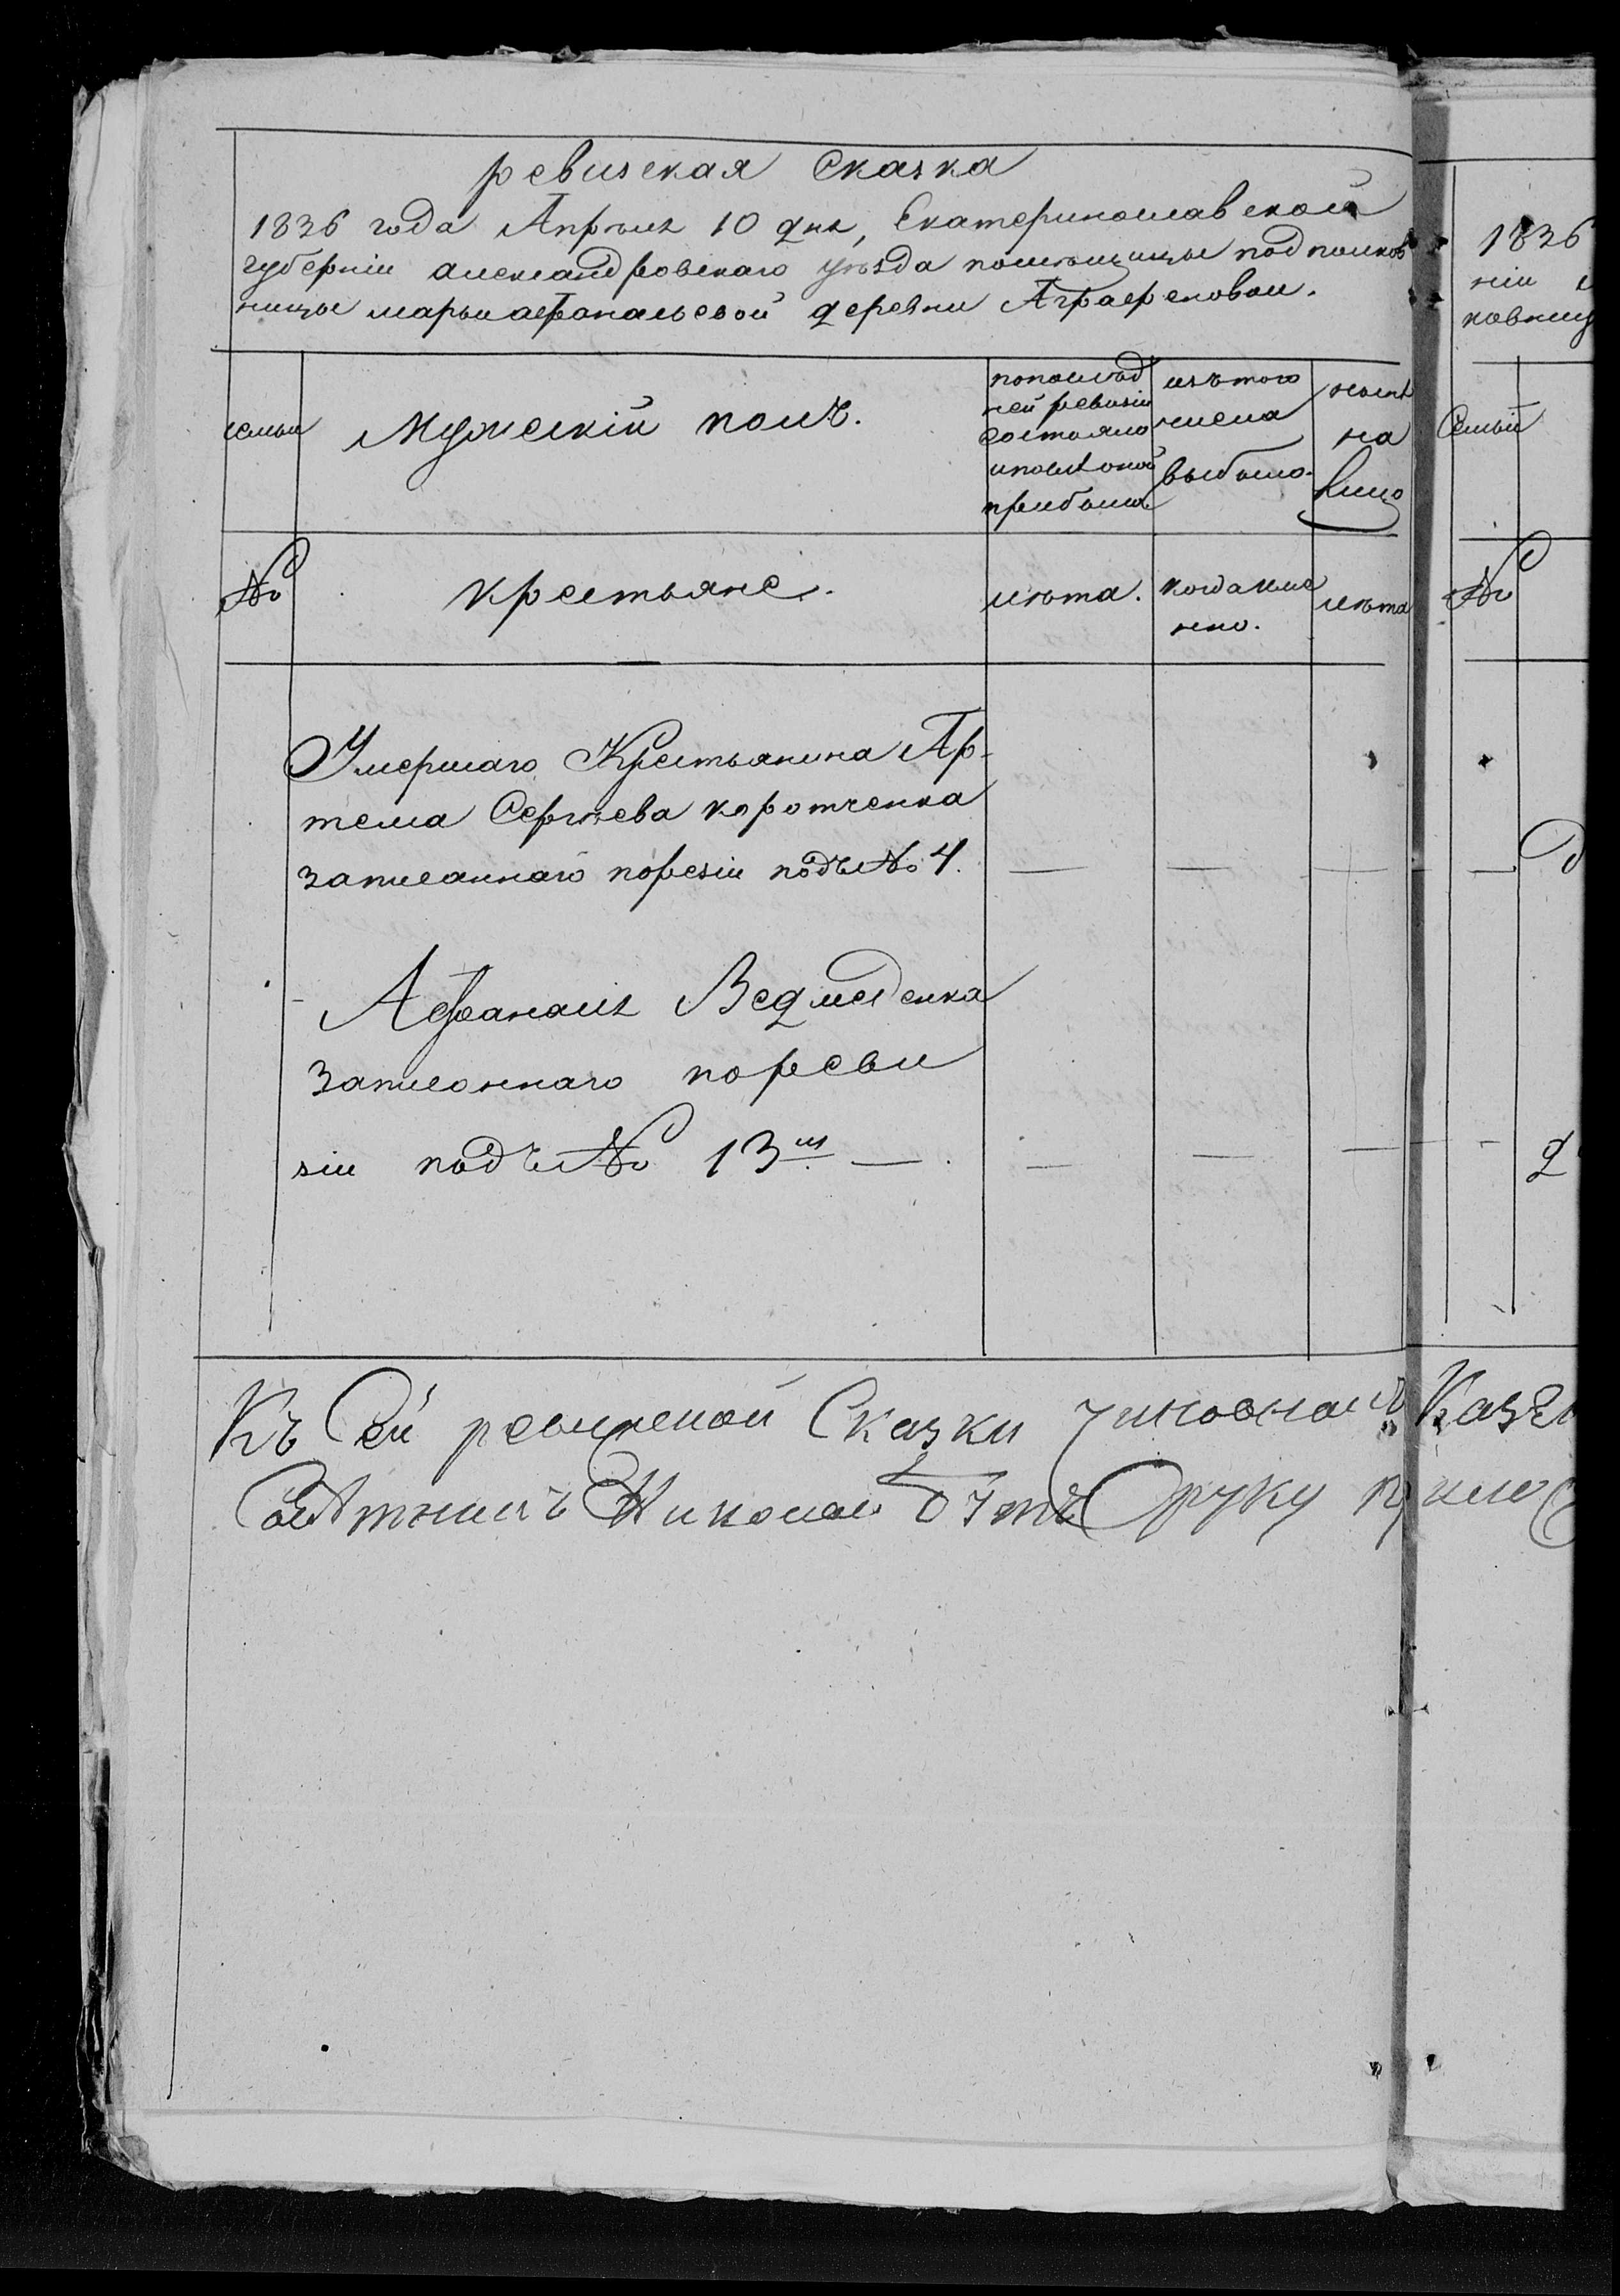 ревизская Сказка
1836 года Апрѣля 10 дня, Екатеринославской
губерніи александровскаго уѣзда помѣщицы подполков
ницы марьи афанасьевой деревни Аграфеновои.
семьи
Мужескій полъ.
попослѣд
ней ревизіи
состояло
ипослѣ оной
прибыло
изътого
числа
выбыло.
нынѣ
на
лицо
№
крестьяне.
лѣта.
когда име
нно.
лѣта
Умершаго Крестьянина Ар-
тема Сергѣева коротченка
записаннаго поревзіи подъ № 4.
Афанасія Ведмеденка
записаннаго
зіи подъ № 13м
Къ Сей ревизской Сказки
Николай руку
1836
ніи
ковниц
Семьи
№